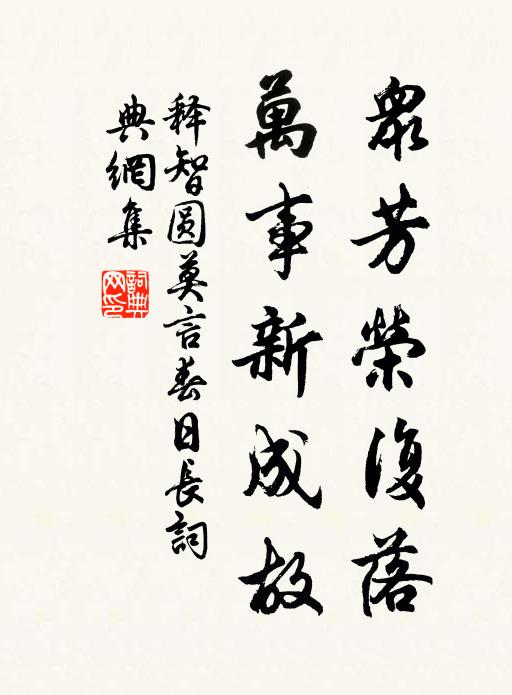 衆芳榮復落
萬事新成故
释智圆莫言春日長詞
典網集
詞典
网印